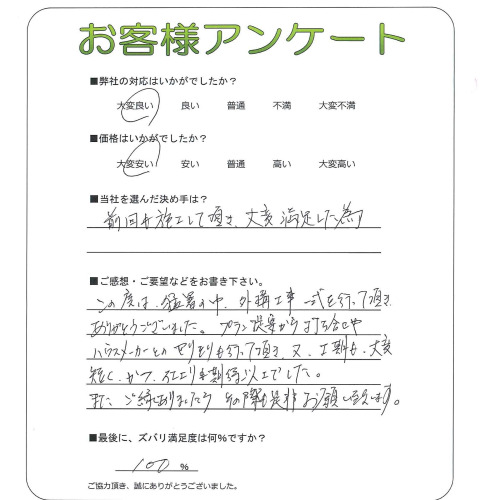 お客様アンケート
■弊社の対応はいかがでしたか？
大変良い 良い 普通 不満 大変不満
■価格はいかがでしたか？
大変安い 安い 普通 高い 大変高い
■当社を選んだ決め手は？
前回も施工して頂き、大変満足した為
■ご感想・ご要望などをお書き下さい。
この度は、猛暑の中、外構工事一式を行って頂き
ありがとうございました。プラン提案から打ち合せや
ハウスメーカーとのやりとりも行って頂き、又、工期も、大変
短く、かつ、仕上りも期待以上でした。
また、ご縁ありましたら その際も是非お願い致します。
■最後に、ズバリ満足度は何％ですか？
100 ％
ご協力頂き、誠にありがとうございました。